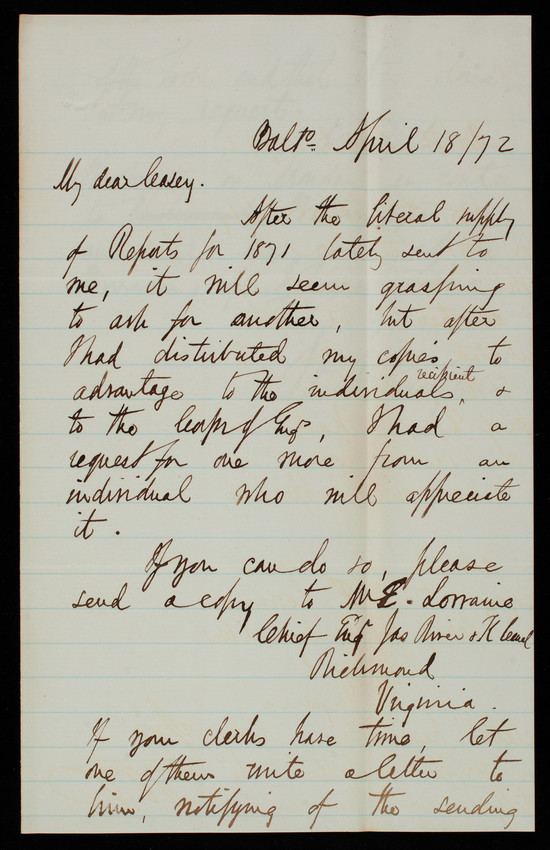 Balto. April 18/72
My dear Casey.
After the liberal supply
of Reports for 1871 lately sent to
me, it will seem grasping
to ask for another, but after
I had distributed my copies to
advantage to the individuals recipient, &
to the Corps of Engrs, I had a
request for one more from an
individual who will appreciate
it.
If you can do so, please
send a copy to Mr E. Lorraine
Chief Engr Jas River & K Canal
Richmond
Virginia.
If your clerks have time, let
one of them write a letter to
him, notifying of the sending